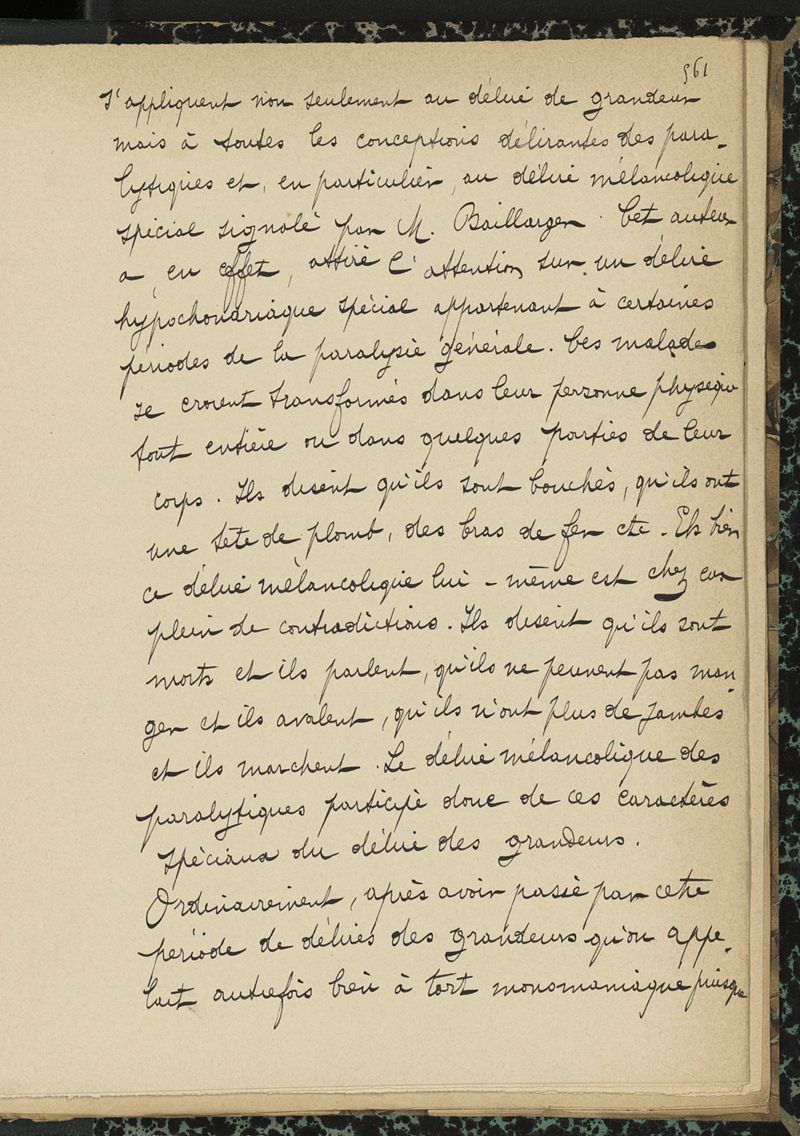 561
s'appliquent non seulement au délire de grandeur
mais à toutes les conceptions délirantes des para-
lytiques et, en particulier, au délire mélancolique
spécial signalé par M. Baillarger. Cet auteur
a, en effet, attiré l'attention sur un délire
hypochondriaque spécial appartenant à certaines
périodes de la paralysie générale. Ces malades
se croient transformés dans leur personne physique
tout entière ou dans quelques parties de leur
corps. Ils disent qu'ils sont bouchés, qu'ils ont
une tête de plomb, des bras de fer etc. Eh bien
ce délire mélancolique lui-même est chez eux
plein de contradictions. Ils disent qu'ils sont
morts et ils parlent, qu'ils ne peuvent pas man-
ger et ils avalent, qu'ils n'ont plus de jambes
et ils marchent. Le délire mélancolique des
paralytiques participe donc de ces caractères
spéciaux du délire des grandeurs.
Ordinairement, après avoir passé par cette
période de délires des grandeurs qu'on appe-
lait autrefois bien à tort monomaniaque puisque